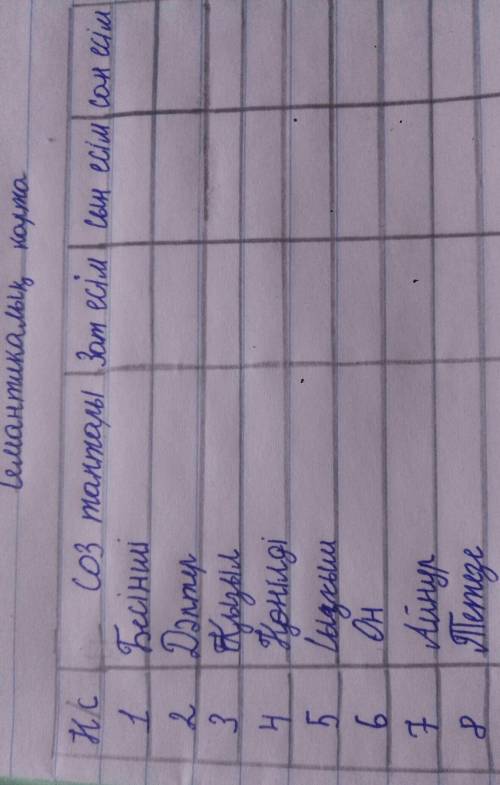 Семантикалық карта
Н/С Соз таптары Зат есім Сын есім Сан есім
1 Бесінші
2 Дәптер
3 Қызыл
4 Көңілді
5 Сызғыш
6 Он
7 Айнұр
8 Тетезе